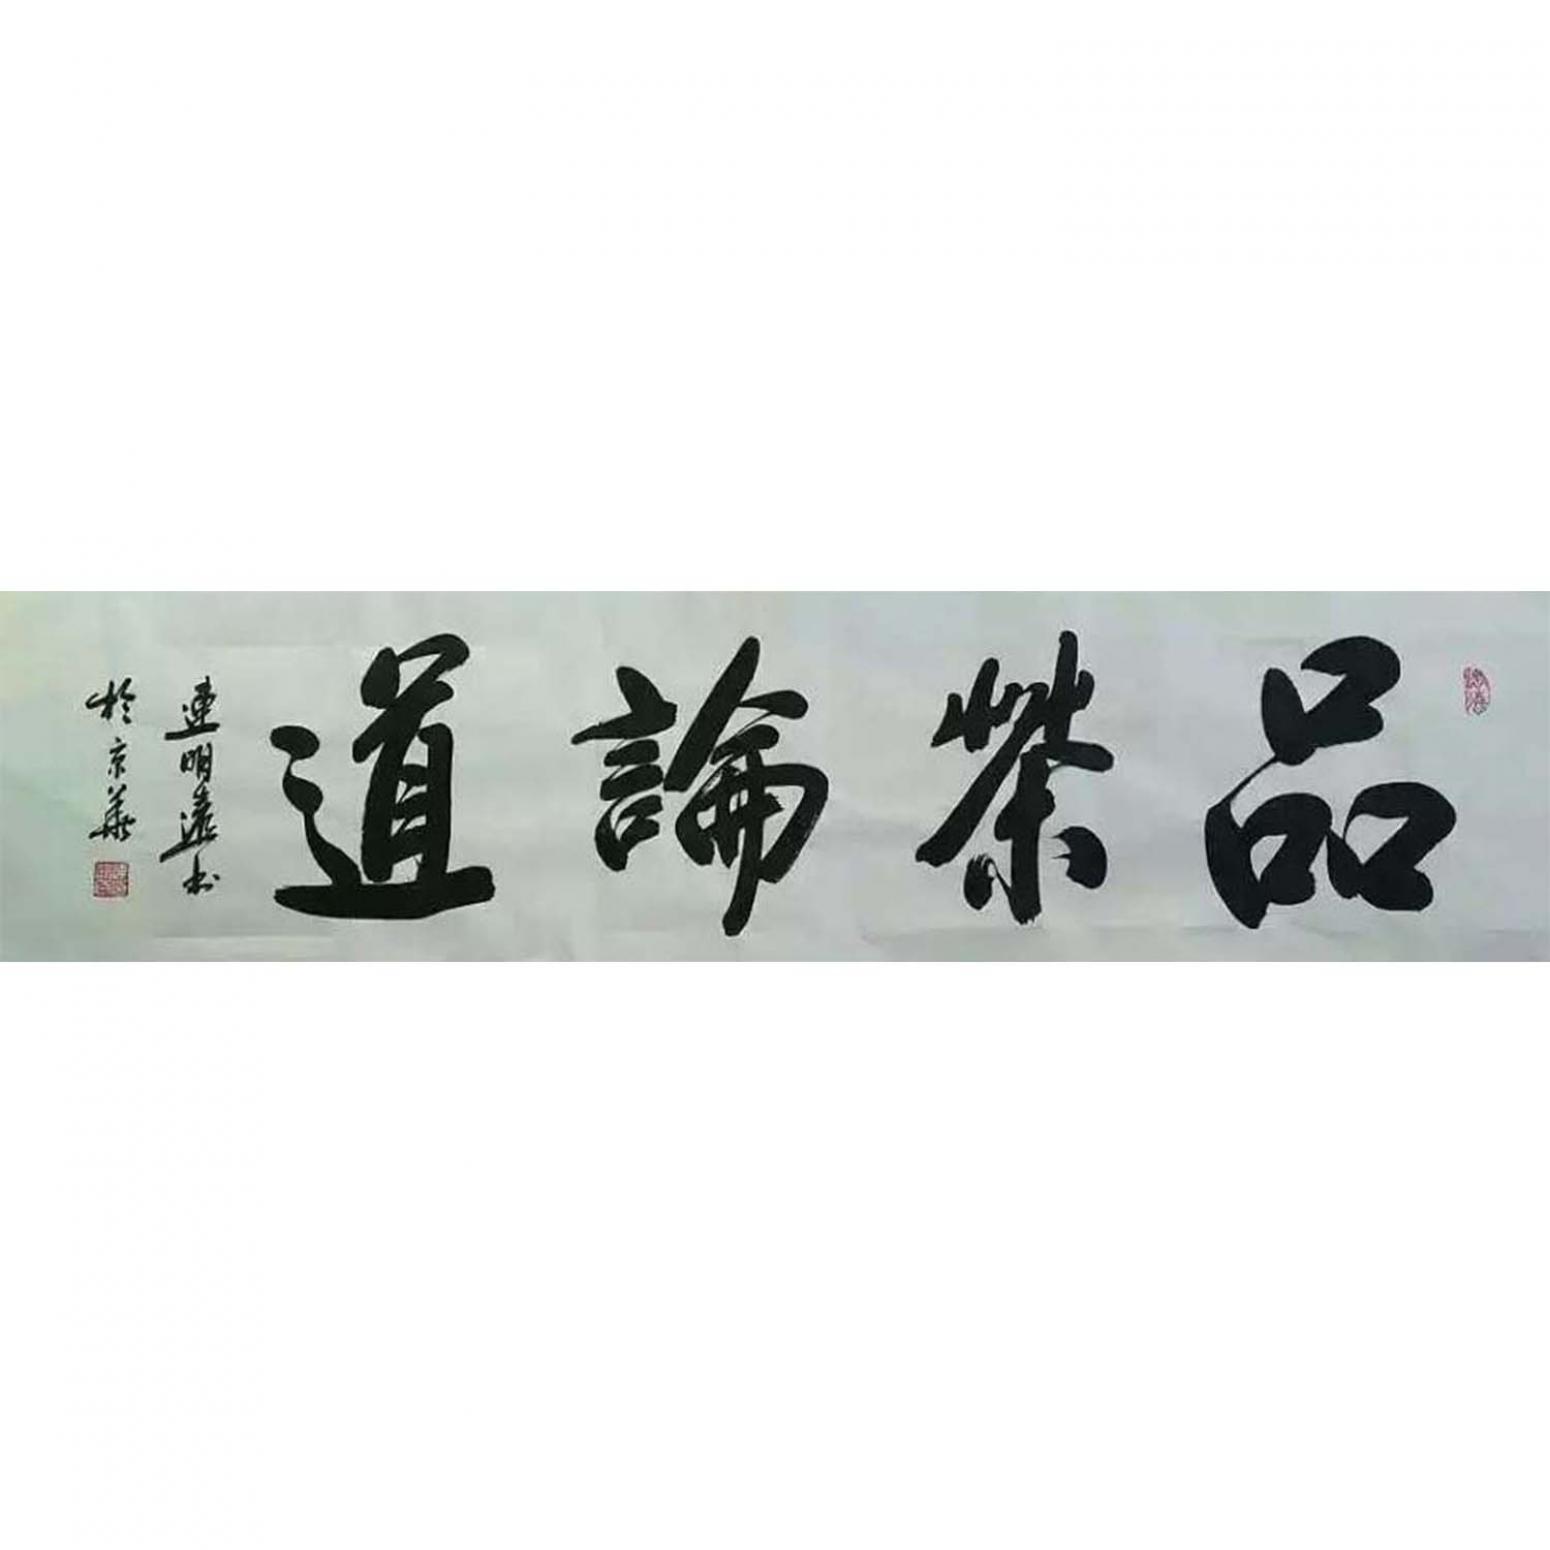 品茶論道
連明遠书
於京華